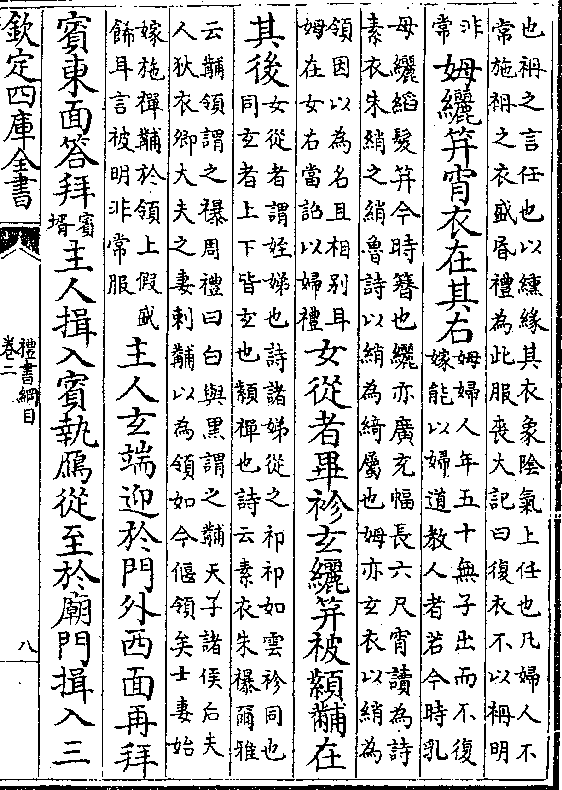 也袡之言任也以纁緣其衣象陰氣上任也凡婦人不
常施袡之衣盛昏禮為此服喪大記曰復衣不以袡明
非
常
姆纚笄宵衣在其右
姆婦人年五十無子出而不復
嫁能以婦道教人者若今時乳
母纚縚髮笄今時簪也纚亦廣充幅長六尺宵讀為詩
素衣朱綃之綃魯詩以綃為綺屬也姆亦玄衣以綃為
領因以為名且相別耳
姆在女右當詔以婦禮
女從者畢袗玄纚笄被顈黼在
其後
女從者謂姪娣也詩諸娣從之祁祁如雲袗同也
同玄者上下皆玄也顈襌也詩云素衣朱襮爾雅
云黼領謂之襮周禮曰白與黑謂之黼天子諸侯后夫
人狄衣卿大夫之妻刺黼以為領如今偃領矣士妻始
嫁施襌黼於領上假盛
飾耳言被明非常服
主人玄端迎於門外西面再拜
賓東面答拜
賓
壻
主人揖入賓執鴈從至於廟門揖入三
欽定四庫全書
禮書綱目
卷二
八